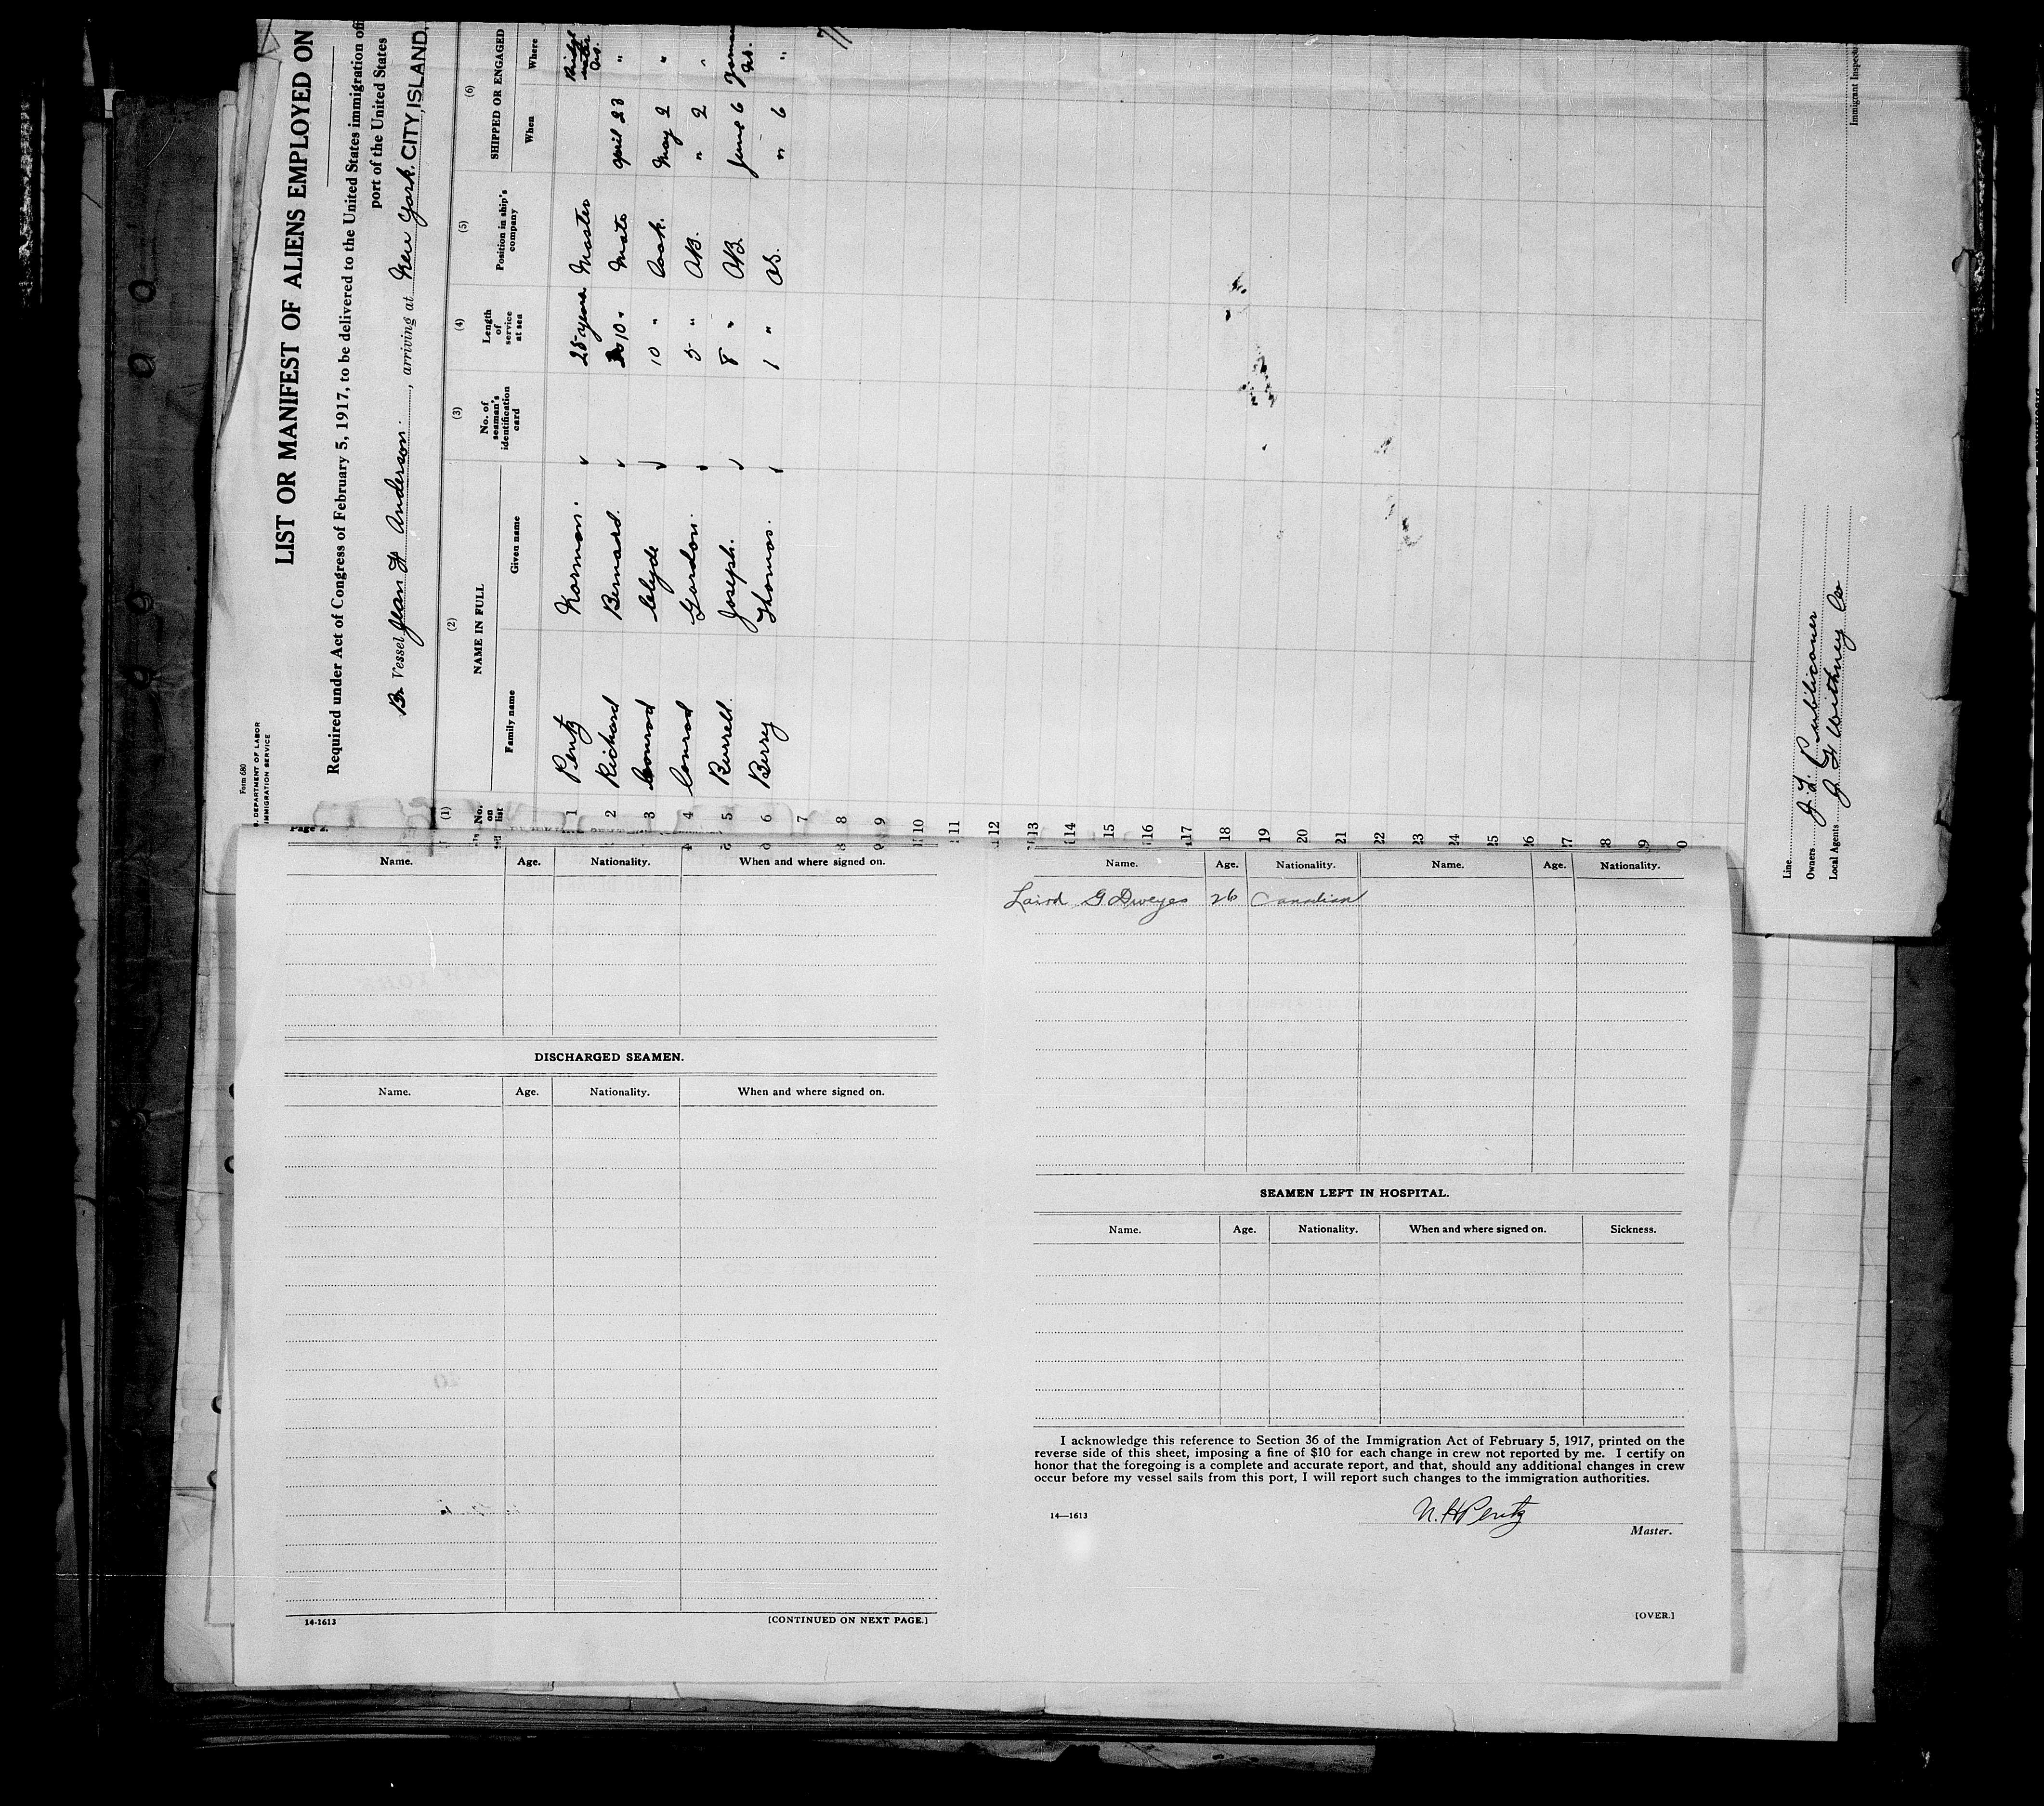 Form 680
DEPARTMENT OF LABOR
IMMIGRATION SERVICE
LIST OR MANIFEST OF ALIENS EMPLOYED ON
Required under Act of Congress of February 5, 1917, to be delivered to the United States immigration
port of the United States
Br Vessel Jean F Anderson, arriving at New York. CITY, ISLAND,
(1) (2) (3) (4) (5) (6)
No. on list
NAME IN FULL
Family name Given name
No. of seaman's identification card
Length of service at sea
Position in ship's company
SHIPPED OR ENGAGED
When Where
1 Pentz Norman. 25 years Master
2 Richard Bernard. 10 " Mate April 23 "
3 Conrod Clyde 10 " Cook. May 2 "
4 Conrod Gordon. 5 " AB. " 2 "
5 Burrell. Joseph. 8 " AB June 6
6 Berry Thomas. 1 " OS. " 6 "
7
8
9
10
11
12
13
14
15
16
17
18
19
20
21
22
Line
Owners J. T. Publicover
Local Agents
Immigrant
Name. Age. Nationality. When and where signed on.
DISCHARGED SEAMEN.
Name. Age. Nationality. When and where signed on.
14-1613 [CONTINUED ON NEXT PAGE.]
Name. Age. Nationality. Name. Age. Nationality.
Laird G 26 Canadian
SEAMEN LEFT IN HOSPITAL.
Name. Age. Nationality. When and where signed on. Sickness.
I acknowledge this reference to Section 36 of the Immigration Act of February 5, 1917, printed on the
reverse side of this sheet, imposing a fine of $10 for each change in crew not reported by me. I certify on
honor that the foregoing is a complete and accurate report, and that, should any additional changes in crew
occur before my vessel sails from this port, I will report such changes to the immigration authorities.
14—1613
N. H Pentz
Master.
[OVER.]